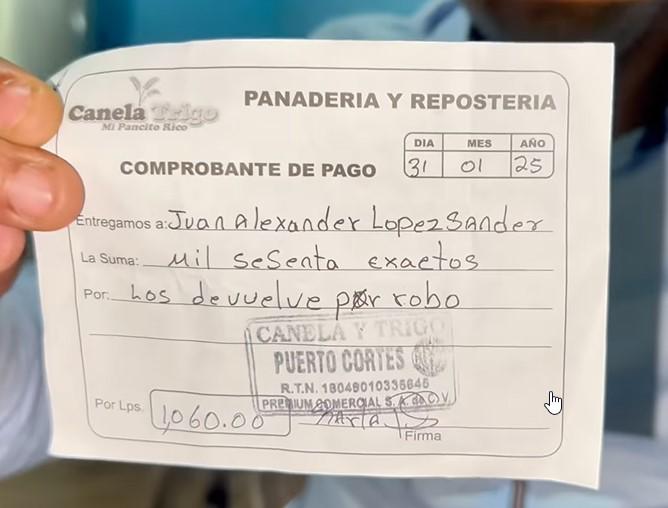 Canela Trigo
Mi Pancito Rico
PANADERIA Y REPOSTERIA
DIA MES AÑO
31 01 25
COMPROBANTE DE PAGO
Entregamos a: Juan Alexander Lopez Sander
La Suma: Mil sesenta exactos
Por: Los devuelve por robo
CANELA Y TRIGO
PUERTO CORTES
R.T.N. 18049010335645
PREMIUM COMERCIAL S. A. de C. V.
Por Lps. 1,060.00
Firma